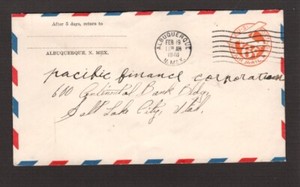 After 5 days, return to
ALBUQUERQUE, N. MEX.
ALBUQUERQUE
FEB 18
N.MEX.
pacific finance corporation
Continental Bank Bldg,
Salt Lake City, Utah.